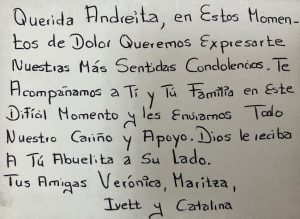 Querida Andreita, en Estos Momen-
tos de Dolor Queremos Expresarte
Nuestras Más Sentidas Condolencias. Te
Acompañamos a Ti y Tú Familia en Este
Difícil Momento y les Enviamos Todo
Nuestro Cariño y Apoyo. Dios le reciba
A Tú Abuelita a Su Lado.
Tus Amigas Verónica, Maritza,
Ivett y Catalina